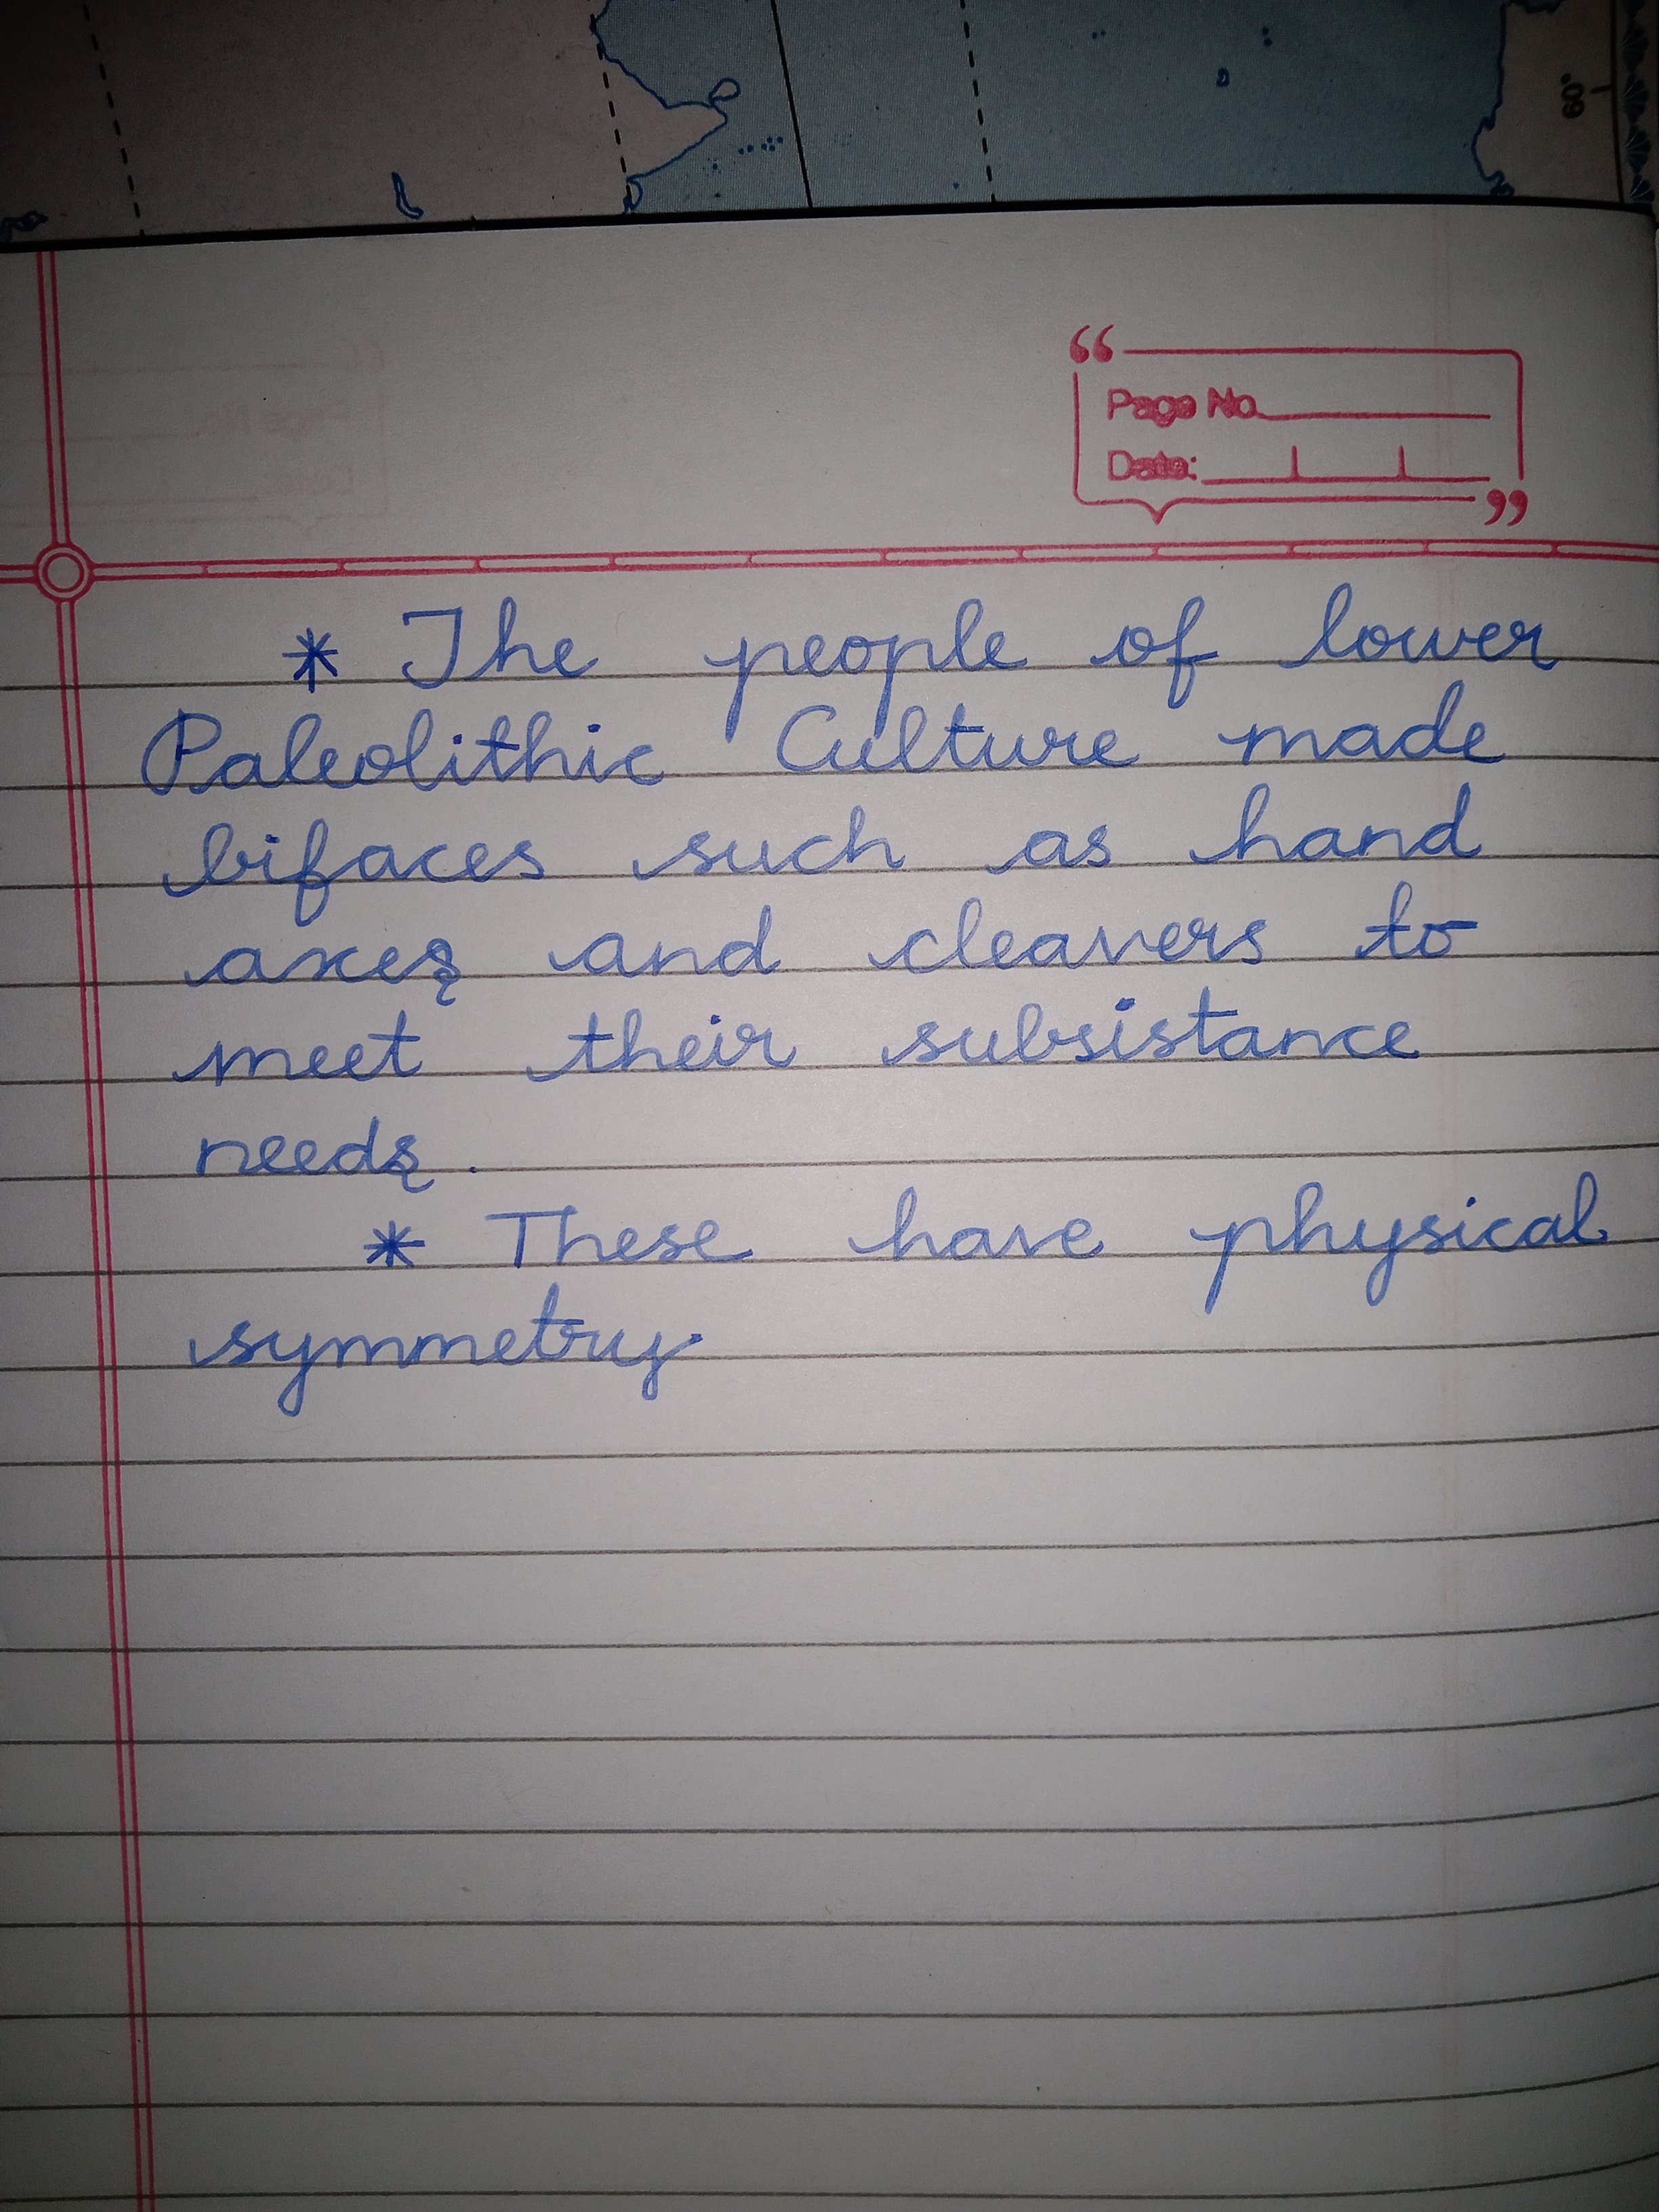 60°
Page No.
Date:
* The people of lower
Paleolithic Culture made
bifaces such as hand
axes and cleavers to
meet their subsistance
needs.
* These have physical
symmetry.